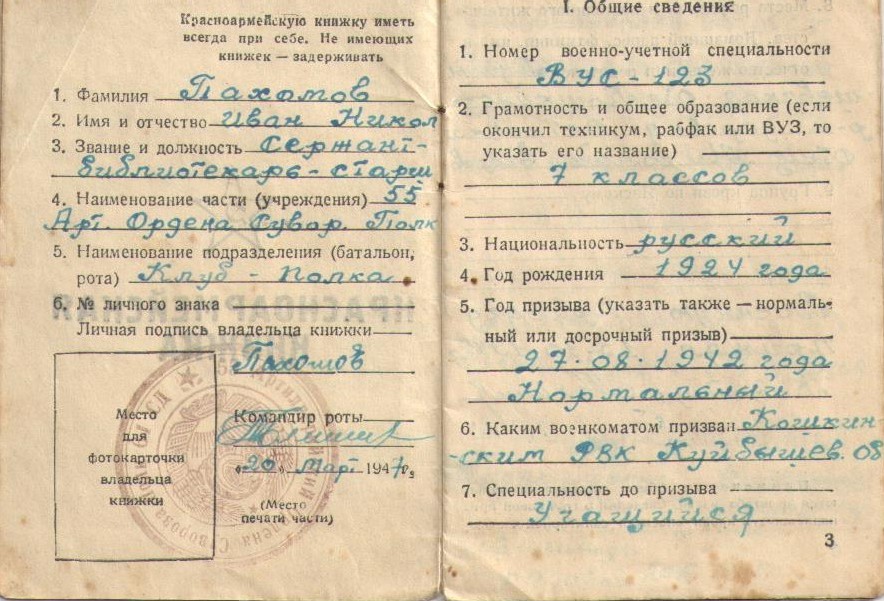 Красноармейскую книжку иметь
всегда при себе. Не имеющих
книжек — задерживать
1. Фамилия Пахомов
2. Имя и отчество Иван Никол
3. Звание и должность Сержант-
библиотекарь - старш
4. Наименование части (учреждения) 55
Арт. Ордена Сувор. Полк
5. Наименование подразделения (батальон,
рота) Клуб - полка
6. № личного знака
Личная подпись владельца книжки
Пахомов
Место
для
фотокарточки
владельца
книжки
Командир роты
„20" март 1947г.
(Место
печати части)
I. Общие сведения
1. Номер военно-учетной специальности
ВУС - 123
2. Грамотность и общее образование (если
окончил техникум, рабфак или ВУЗ, то
указать его название)
7 классов
3. Национальность русский
4. Год рождения 1924 года
5. Год призыва (указать также — нормаль-
ный или досрочный призыв)
27·08·1942 года
Нормальный
6. Каким военкоматом призван Кошкин-
-ским РВК Куйбышев. об
7. Специальность до призыва
Учащийся
3